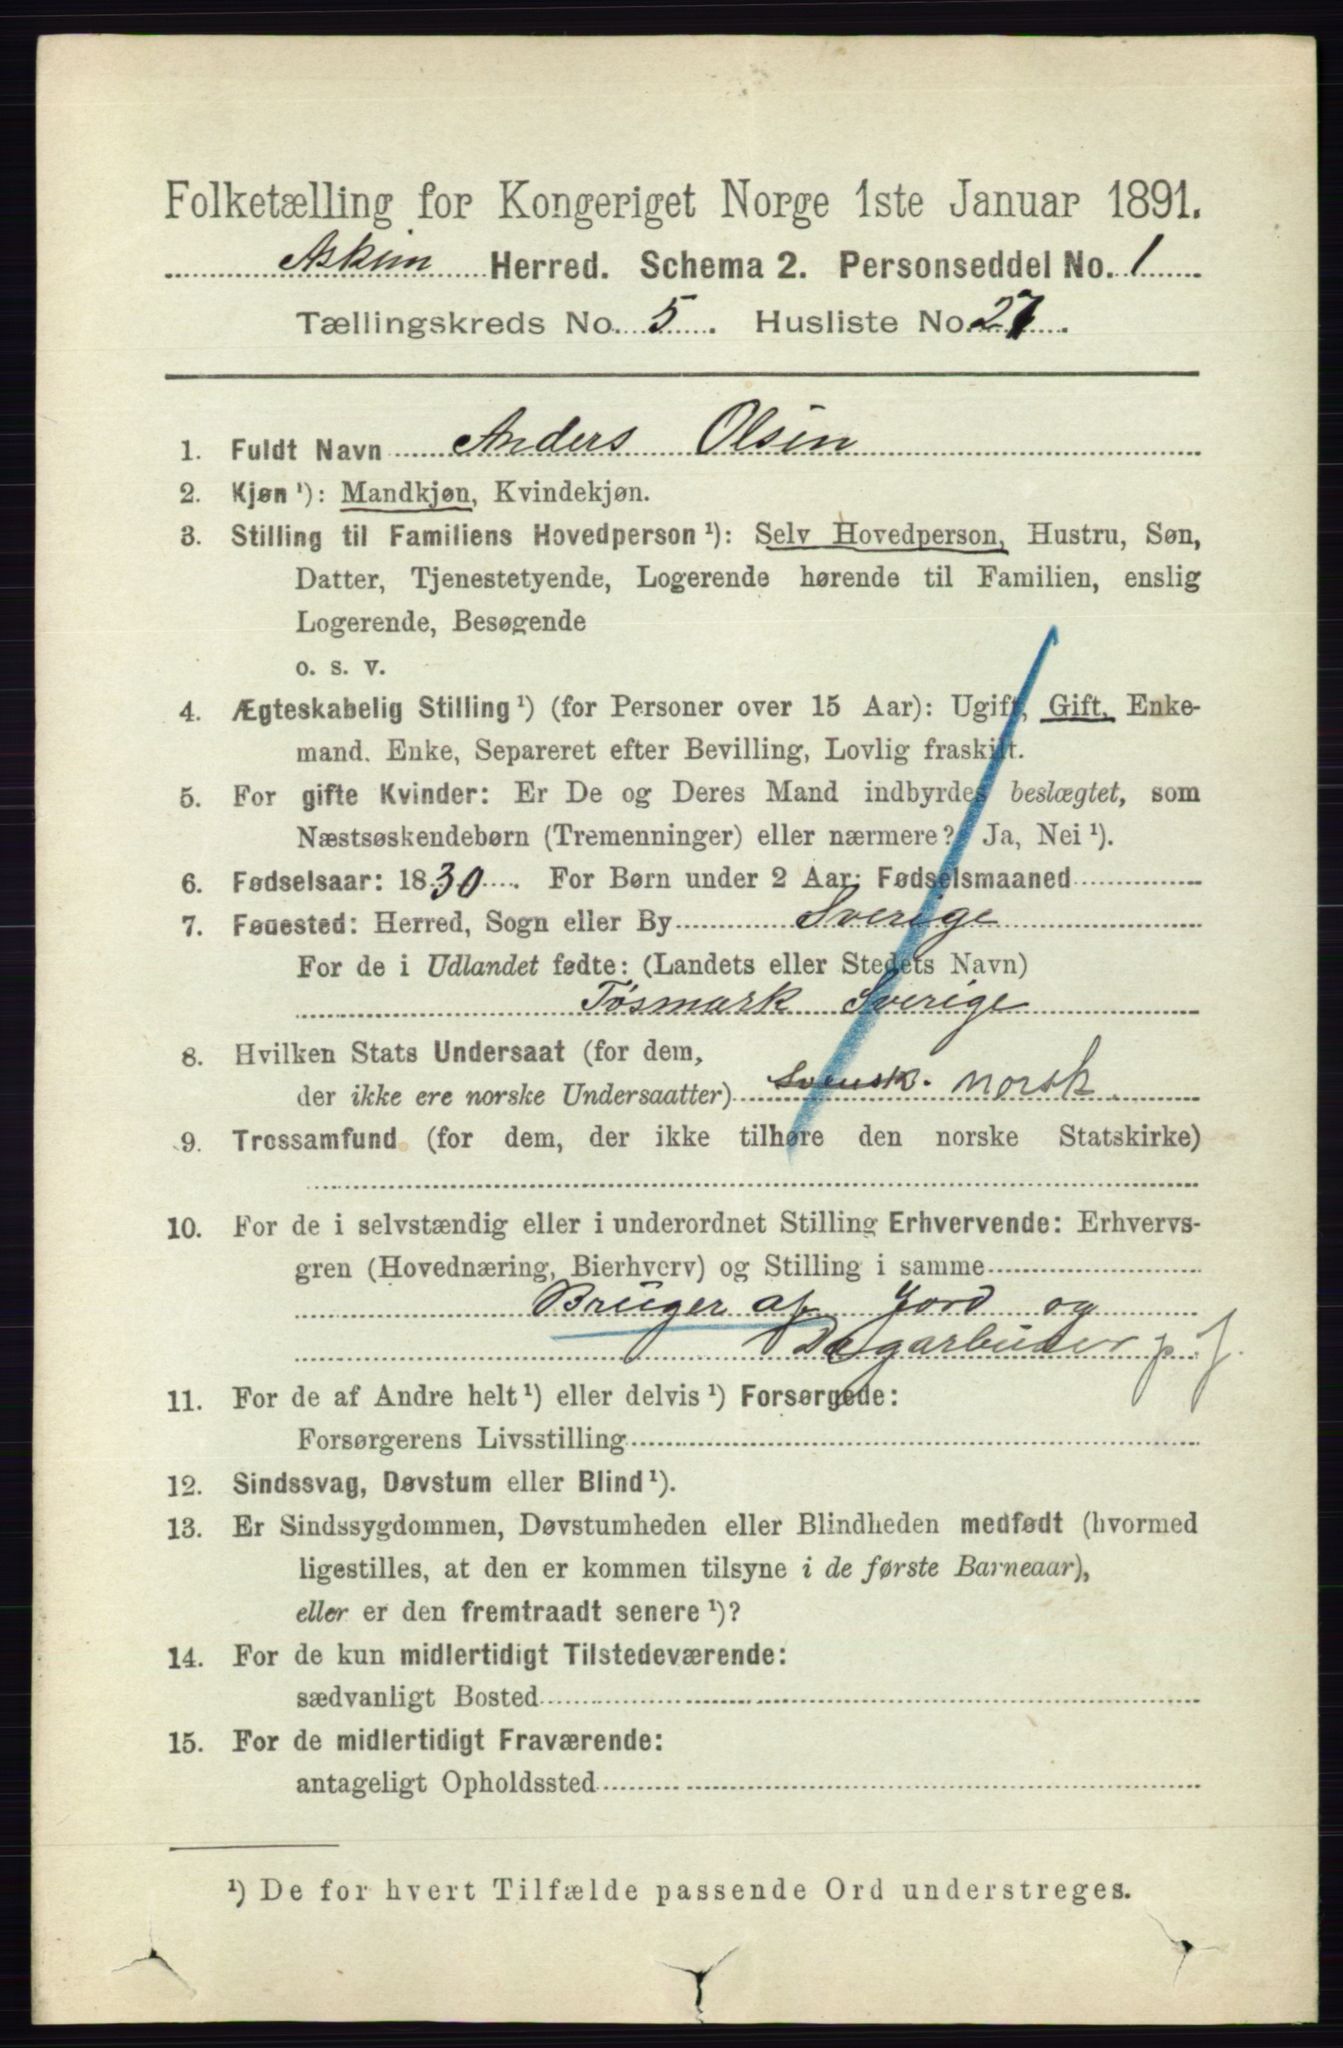 Folketælling for Kongeriget Norge 1ste Januar 1891.
Askim Herred. Schema 2. Personseddel No. 1
Tællingskreds No. 5. Husliste No. 27.
1. Fuldt Navn Anders Olsen
2. Kjøn ¹): Mandkjøn, Kvindekjøn.
3. Stilling til Familiens Hovedperson ¹): Selv Hovedperson, Hustru, Søn,
Datter, Tjenestetyende, Logerende hørende til Familien, enslig
Logerende, Besøgende
o. s. v.
4. Ægteskabelig Stilling ¹) (for Personer over 15 Aar): Ugift, Gift, Enke-
mand. Enke, Separeret efter Bevilling, Lovlig fraskilt.
5. For gifte Kvinder: Er De og Deres Mand indbyrdes beslægtet, som
Næstsøskendebørn (Tremenninger) eller nærmere? Ja, Nei ¹).
6. Fødselsaar: 1830. For Børn under 2 Aar: Fødselsmaaned
7. Føuested: Herred, Sogn eller By Sverige
For de i Udlandet fødte: (Landets eller Stedets Navn)
Tøsmark Sverige
8. Hvilken Stats Undersaat (for dem,
der ikke ere norske Undersaatter) Svensk. norsk
9. Trossamfund (for dem, der ikke tilhøre den norske Statskirke)
10. For de i selvstændig eller i underordnet Stilling Erhvervende: Erhvervs-
gren (Hovednæring, Bierhverv) og Stilling i samme
Bruger af Jord og
Dagarbeider p. J.
11. For de af Andre helt ¹) eller delvis ¹) Forsørgede:
Forsørgerens Livsstilling
12. Sindssvag, Døvstum eller Blind ¹).
13. Er Sindssygdommen, Døvstumheden eller Blindheden medfødt (hvormed
ligestilles, at den er kommen tilsyne i de første Barneaar),
eller er den fremtraadt senere ¹)?
14. For de kun midlertidigt Tilstedeværende:
sædvanligt Bosted
15. For de midlertidigt Fraværende:
antageligt Opholdssted
¹) De for hvert Tilfælde passende Ord understreges.